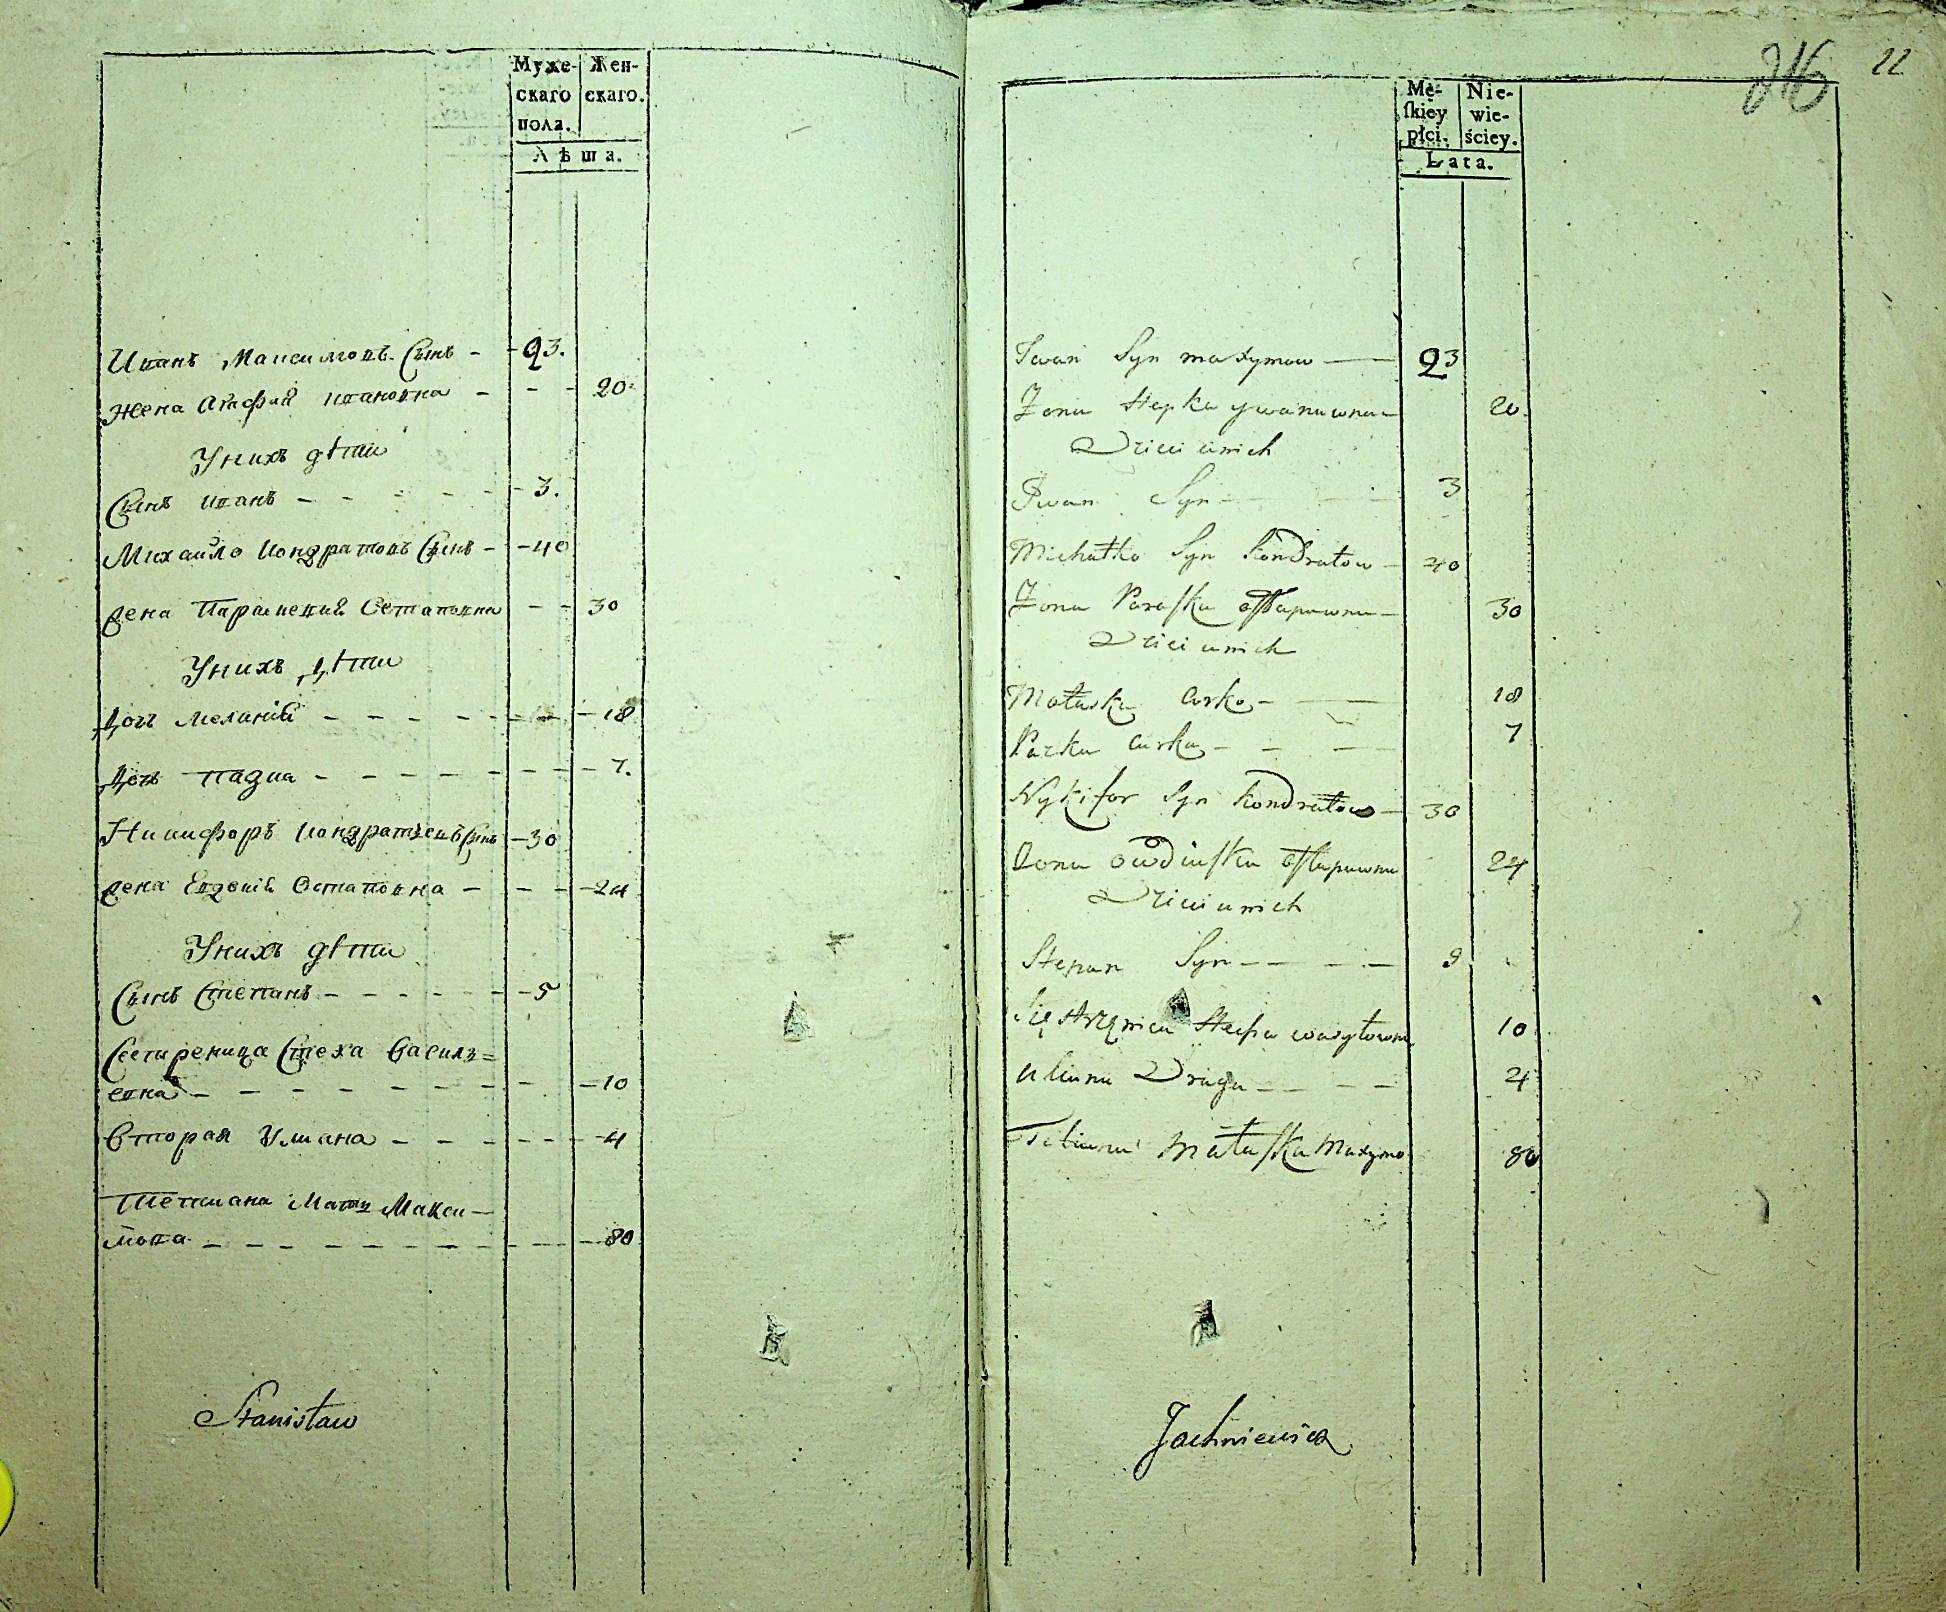 Муже- Жен-
скаго скаго.
пола.
Лѣта.
Иванъ Максимовъ Сынъ - 23.
Жена Агафия Ивановна - 20
Унихъ дѣти
Сынъ иванъ - 3.
Михайло Кондратовъ Сынъ - 40
жена Параскевия Остаповна - 30
Унихъ дѣти
Дочь Мелания - 18
Дочь - 7.
Никифоръ Кондратьевъ Сынъ - 30
жена Евдокия Остаповна - 24
Унихъ дѣти
Сынъ Степанъ - 5
Сестреница Стеха Василь=
евна - 10
Вторая Улиана - 4
Тетиана Мать Макси-
мова - 80
Stanisław
216 22
Mę- Nie-
ſkiey wie-
płci. ściey.
Lata.
Iwan Syn maxymow 23
Żona Stepka ywanuwna 20.
Dzieci unich
Iwan Syn 3
Michałko Syn Kondratow 40
Żona Paraſka Oſtapuwna 30
Dzieci unich
Małaska curka 18
Parka curka 7
Nykifor Syn Kondratow 30
Żona Owdiuſka Oſtapuwna 24
Dzieci unich
Stepan Syn 9
Siestrzenica Stecha wasylowna 10
Uliana Druga 4
Teliana Matuſka Maxymo 80
Jachniewicz